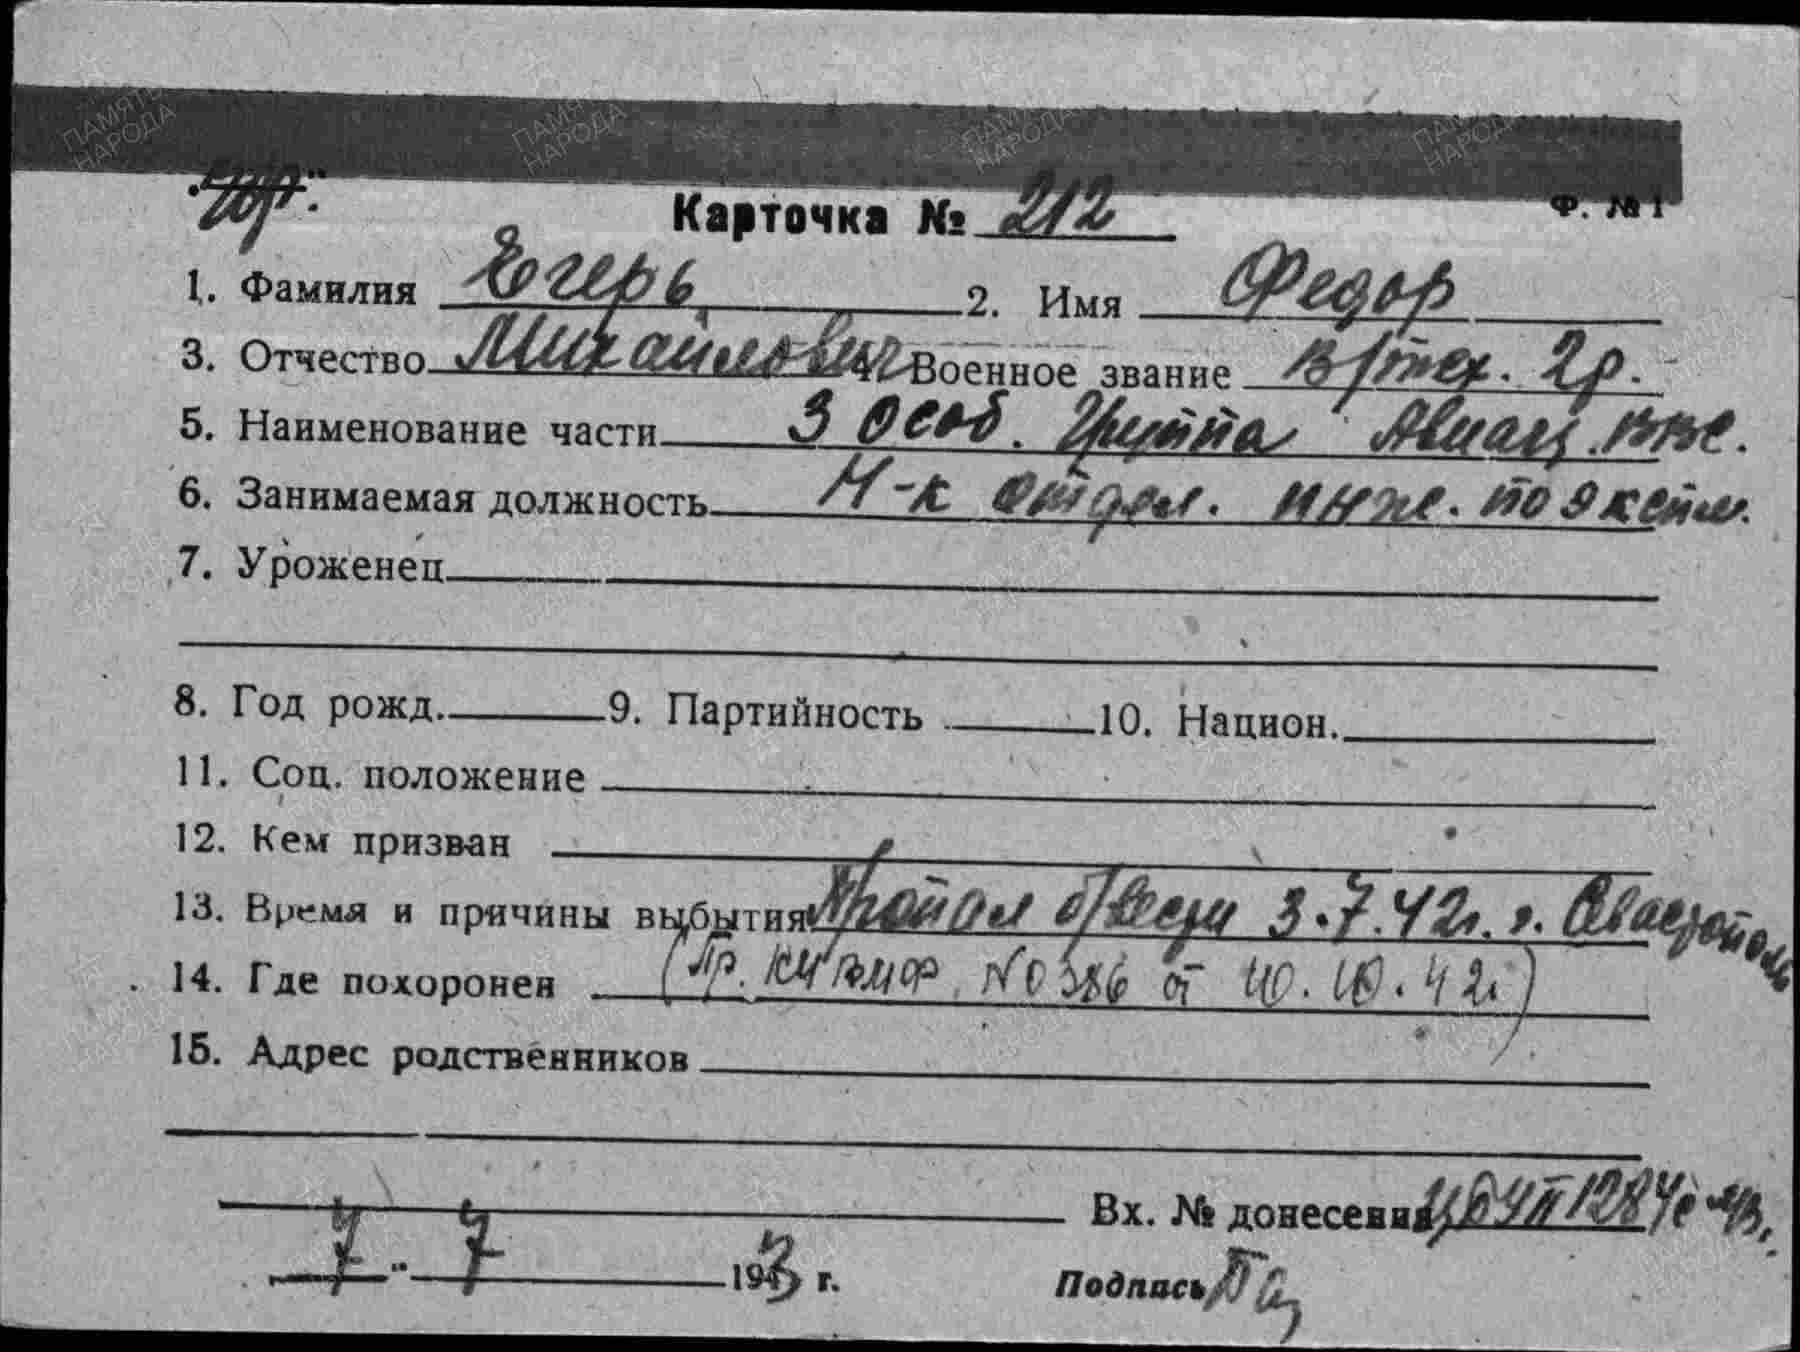 Карточка № 212
Ф. № 1
1. Фамилия Егерь 2. Имя Федор
3. Отчество Михайлович 4. Военное звание в/тех. 2р.
5. Наименование части 3 Особ. Группа Авиац. ВВС.
6. Занимаемая должность Н-к отдел. инж. по экспл.
7. Уроженец
8. Год рожд. 9. Партийность 10. Национ.
11. Соц. положение
12. Кем призван
13. Время и причины выбытия Пропал б/вести 3.7.42г. г. Севастополь
14. Где похоронен (Пр. КЧ ВМФ №0386 от 10.10.42г.)
15. Адрес родственников
Вх. № донесения
7 " 7 1943 г.
Подпись
ПАМЯТЬ НАРОДА